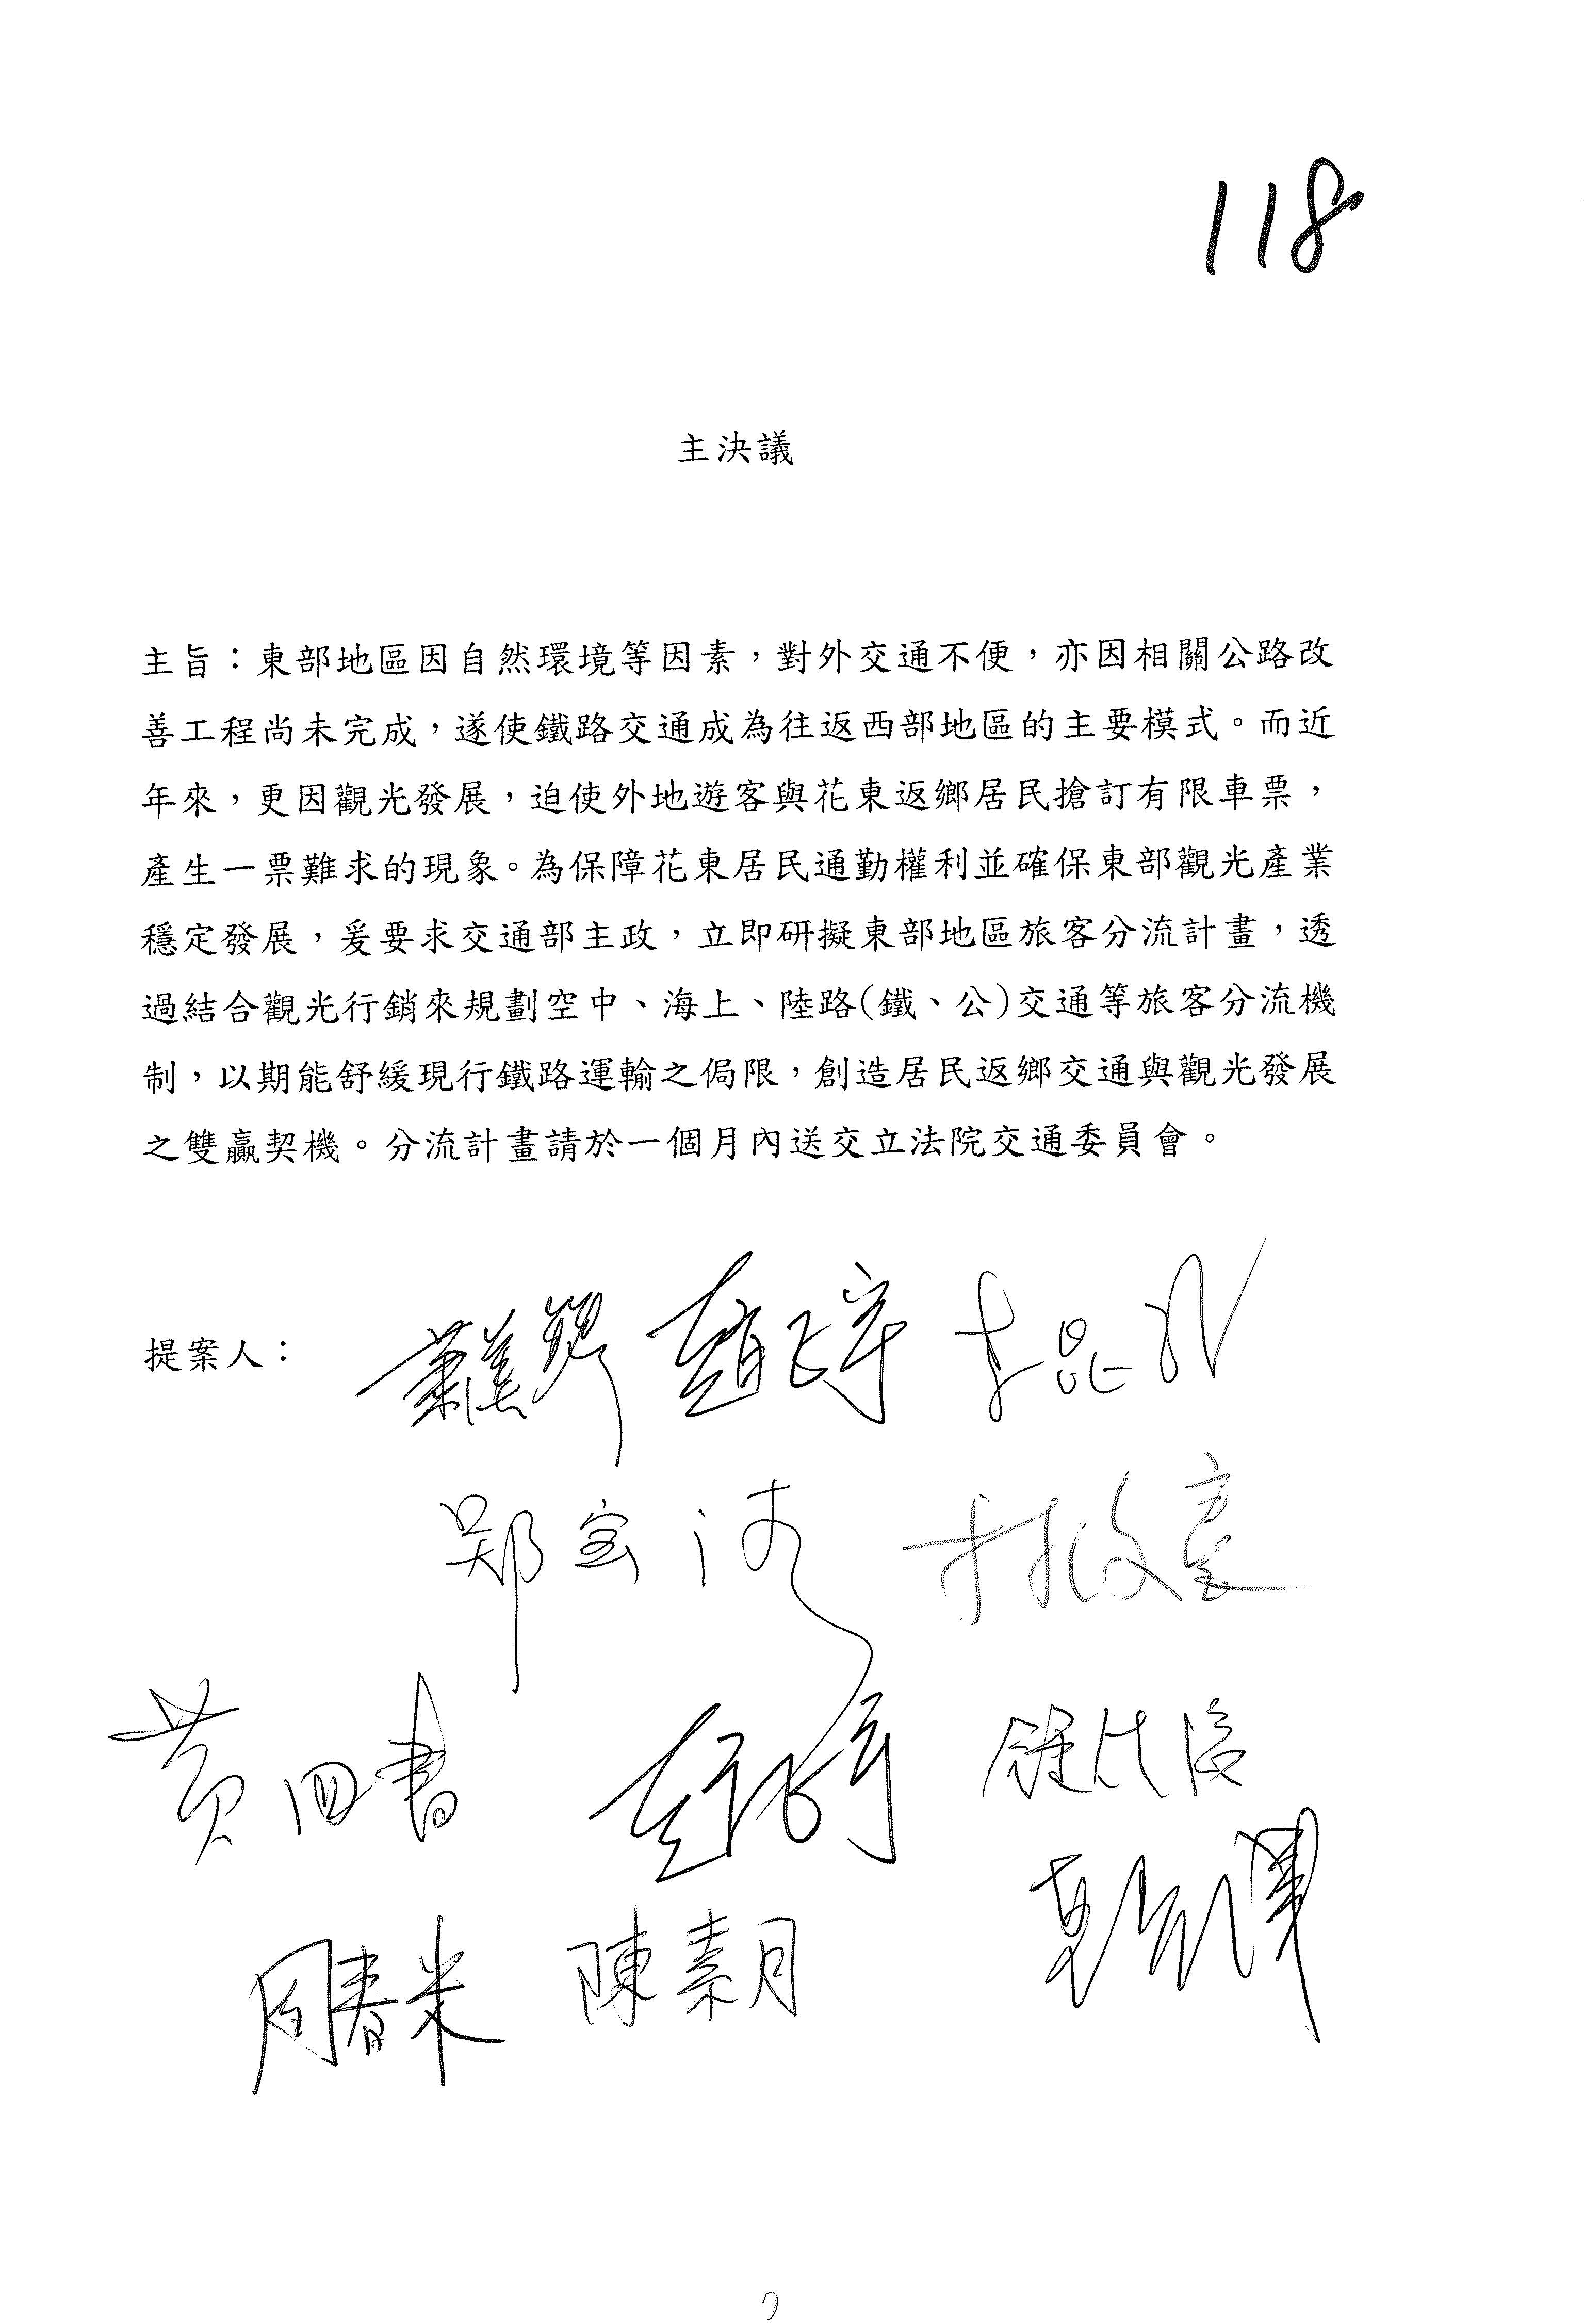 118
主決議
主旨：東部地區因自然環境等因素，對外交通不便，亦因相關公路改
善工程尚未完成，遂使鐵路交通成為往返西部地區的主要模式。而近
年來，更因觀光發展，迫使外地遊客與花東返鄉居民搶訂有限車票，
產生一票難求的現象。為保障花東居民通勤權利並確保東部觀光產業
穩定發展，爰要求交通部主政，立即研擬東部地區旅客分流計畫，透
過結合觀光行銷來規劃空中、海上、陸路(鐵、公)交通等旅客分流機
制，以期能舒緩現行鐵路運輸之侷限，創造居民返鄉交通與觀光發展
之雙贏契機。分流計畫請於一個月內送交立法院交通委員會。
提案人：
蕭美琴
鄭宝清 林俊憲
黃國書
周春米 陳素月